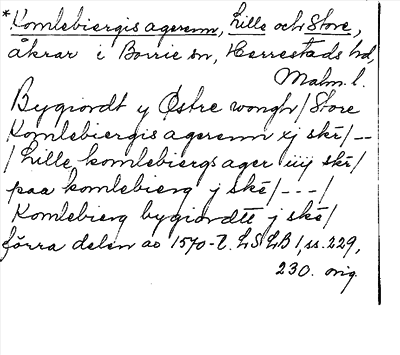 *Komlebiergis agerenn, Lille och Store,
åkrar i Borrie sn, Herrestads hd,
Malm. l.
Bygiordt y Østre wongh/Store
Komlebiergis agerenn xj skē/--
/Lille komlebiergs ager iiij skē/
paa komlebierg j skē/---/
Komlebierg bygiordtt j skē/
förra delen av 1570-t. LSLB 1, ss. 229,
230. orig.